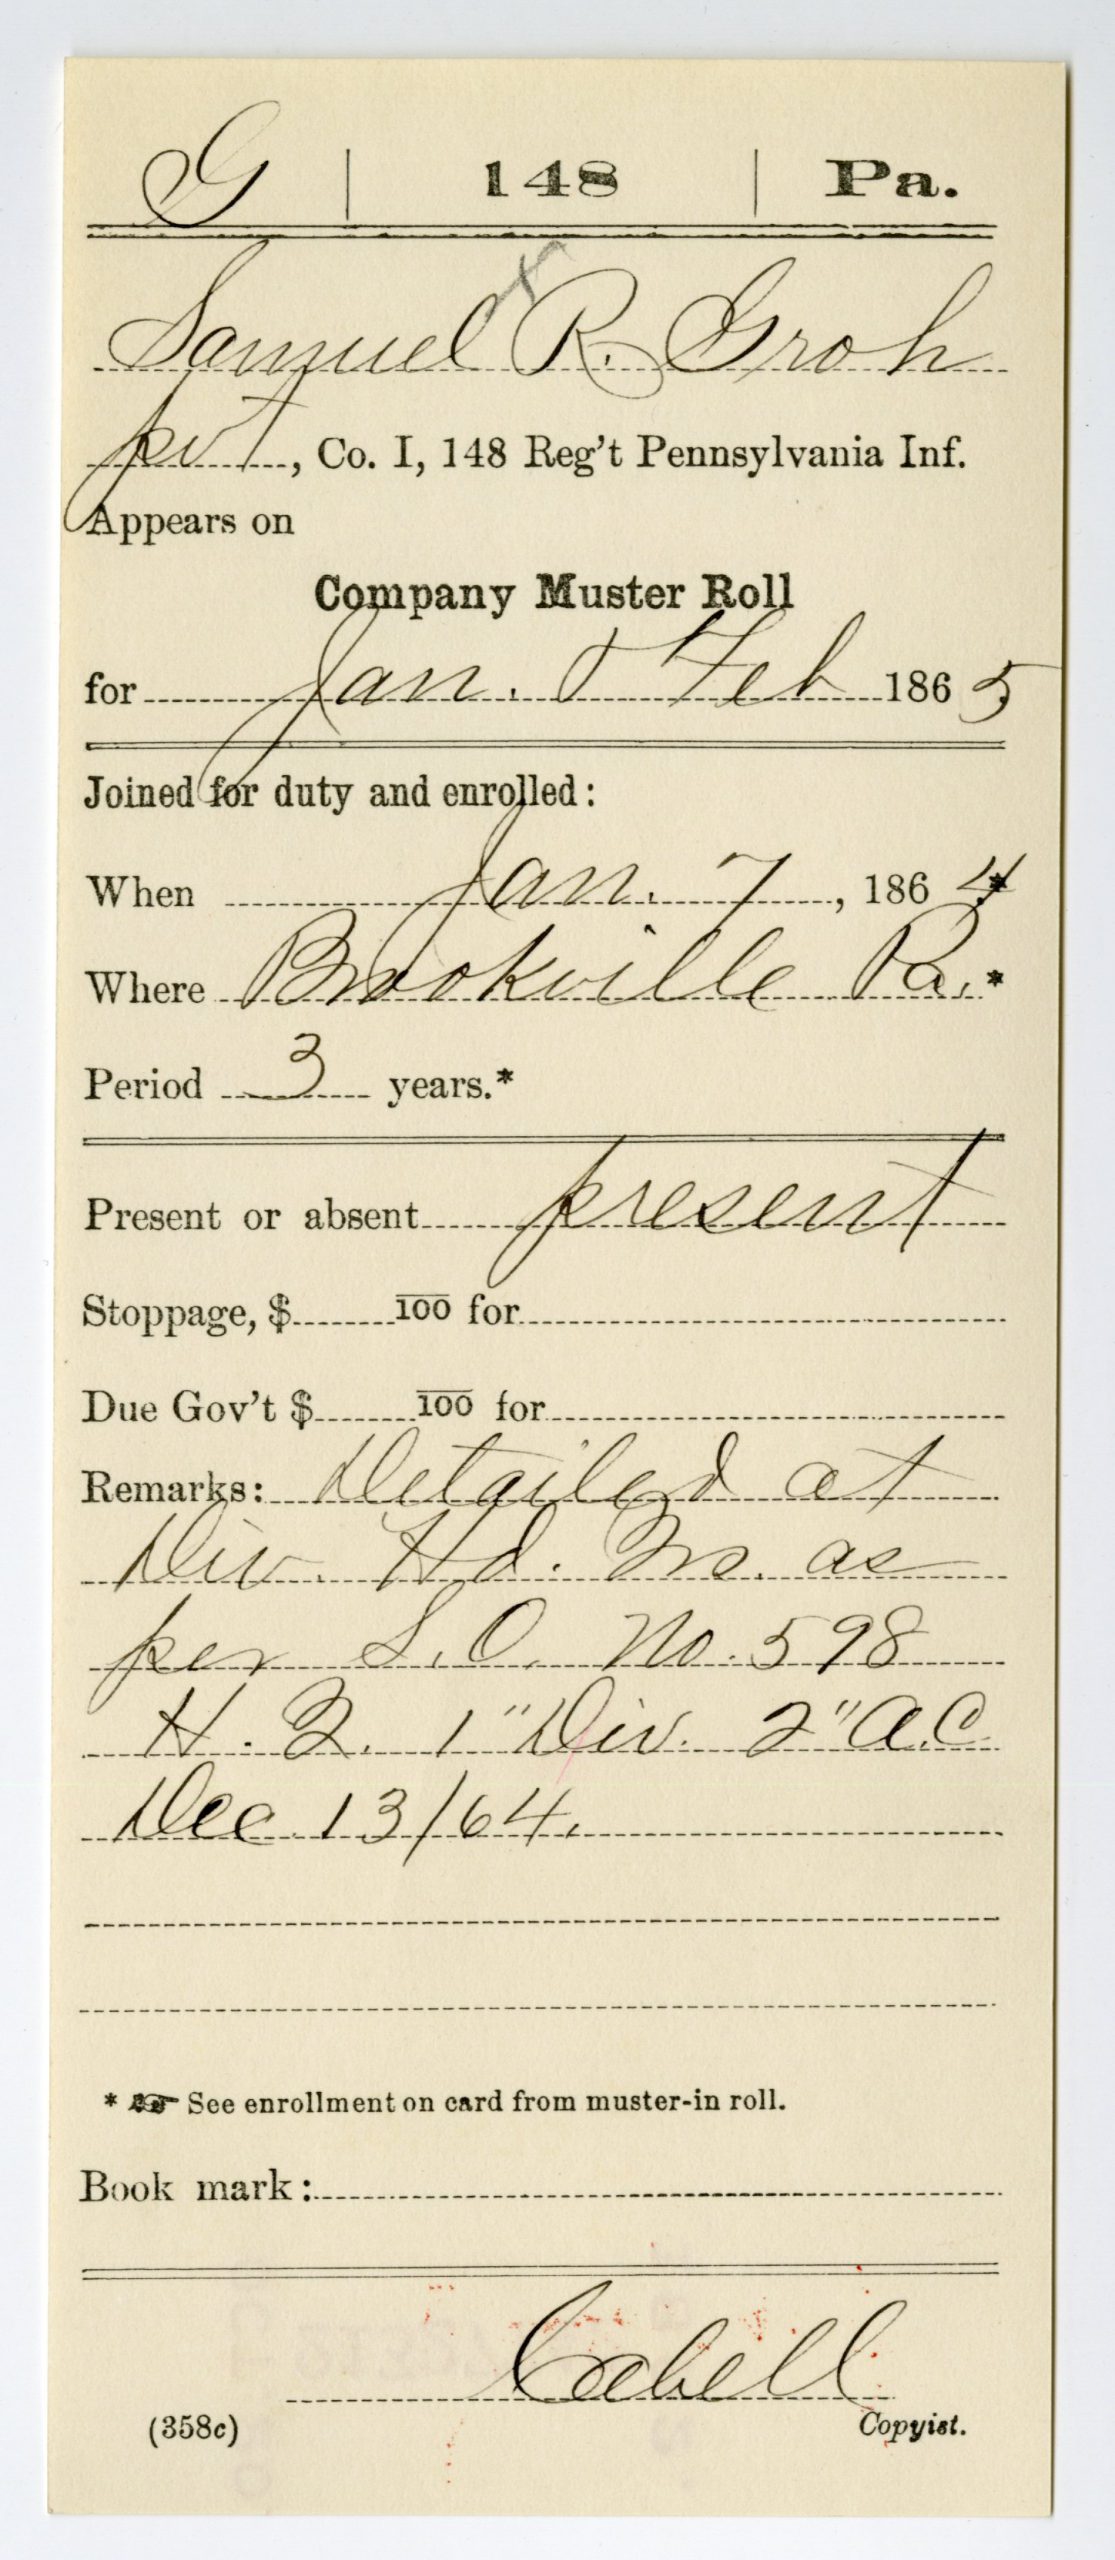 G | 148 | Pa.
Samuel R. Groh
pvt, Co. I, 148 Reg't Pennsylvania Inf.
Appears on
Company Muster Roll
for Jan. & Feb 1865
Joined for duty and enrolled:
When Jan. 7, 1864*
Where Brookville Pa.*
Period 3 years.*
Present or absent present
Stoppage, $ 100 for
Due Gov't $ 100 for
Remarks: Detailed at
Div. Hd. Qrs. as
per S.O. No. 598
H. Q. 1" Div. 2" A.C.
Dec. 13/64.
* ☞ See enrollment on card from muster-in roll.
Book mark:
Cabell
(358c) Copyist.